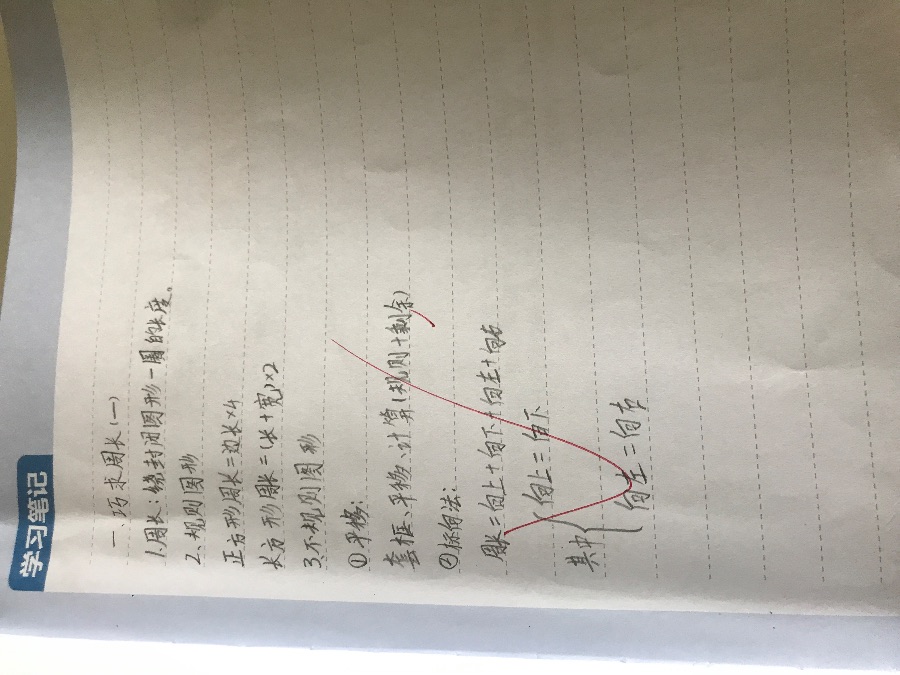 学习笔记
一、巧求周长(一)
1.周长:绕封闭图形一周的长度。
2、规则图形
正方形周长=边长×4
长方形周长=(长+宽)×2
3、不规则图形
①平移:
套框、平移、计算(规则+剩余)
②标向法:
周长=向上+向下+向左+向右
其中{向上=向下
向左=向右